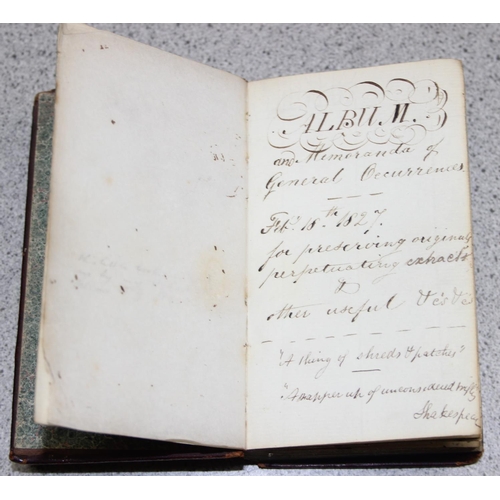 ALBUM.
and Memoranda of
General Occurrences.
Feby. 18th 1827.
for preserving originals
perpetuating extracts
&
other useful &c's &c's
"A thing of shreds & patches"
"A snapper up of unconsidered trifles
Shakespear